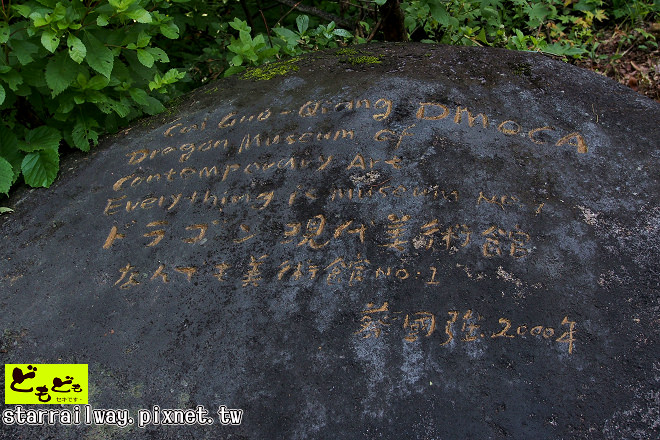 Cai Guo-Qiang DMOCA
Dragon Museum of
Contemporary Art
Everything is museum No.1
ドラゴン現代美術館
なんでも美術館NO.1
蔡國強 2000年
どもども
セキです~
starrailway.pixnet.tw